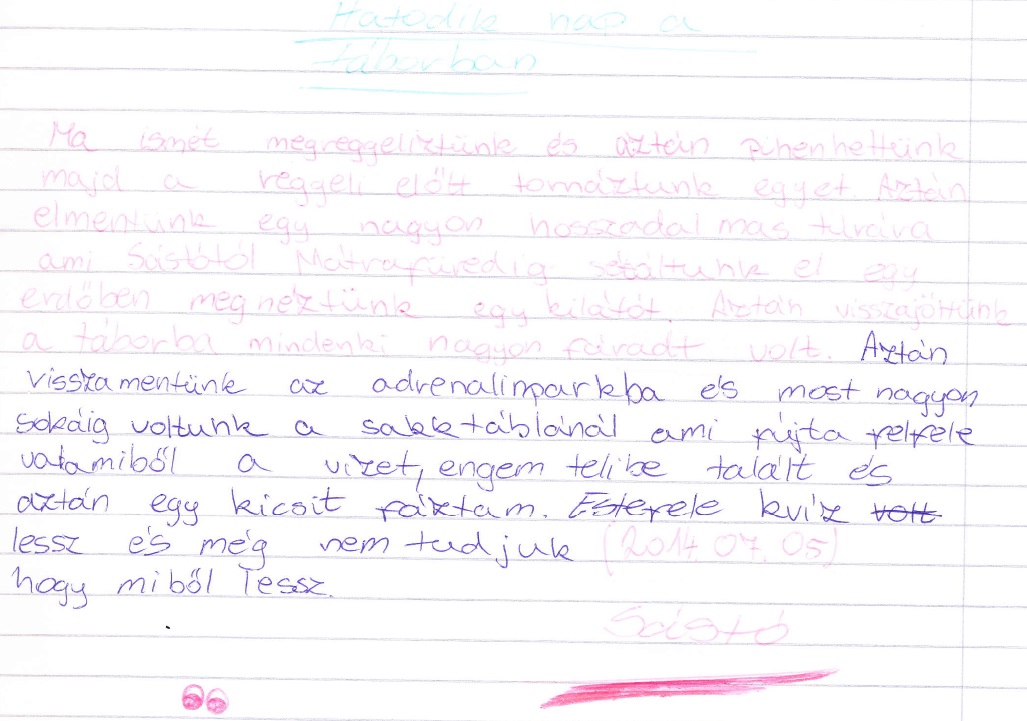 Hatodik nap a
táborban
Ma ismét megreggeliztünk és aztán pihenhettünk
majd a reggeli előtt tornáztunk egyet. Aztán
elmentünk egy nagyon hosszadalmas túrára
ami Sástótól Mátrafüredig sétáltunk el egy
erdőben megnéztünk egy kilátót. Aztán visszajöttünk
a táborba mindenki nagyon fáradt volt. Aztán
visszamentünk az adrenalinparkba és most nagyon
sokáig voltunk a sakktáblánál ami fújta felfele
valamiből a vizet, engem telibe talált és
aztán egy kicsit fáztam. Estefele kvíz volt
lessz és még nem tudjuk (2014. 07. 05)
hogy miből lessz.
Sástó